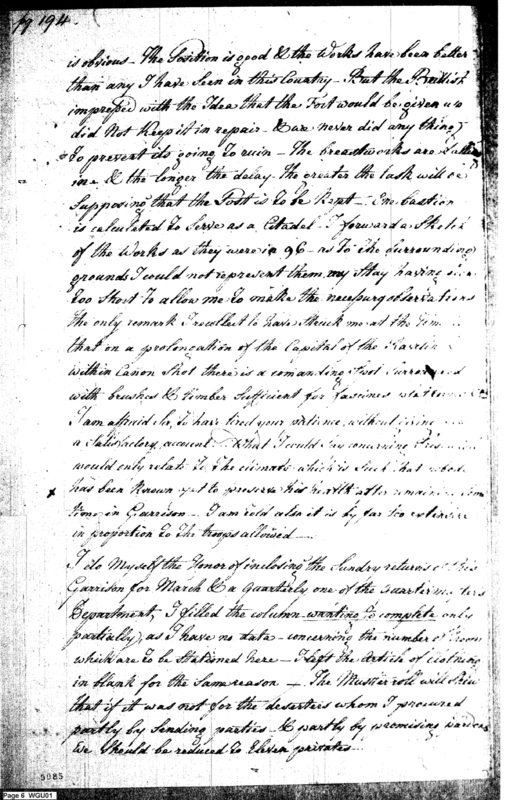 pg 194.
is obvious - The Position is good & the Works have been better
than any I have Seen in this Country - But the British
impressed with the Idea that the Fort would be given up
did Not Keep it in repair - & we never did any thing
To prevent its going To ruin - The breastworks are fallen
in & the longer the delay the greater the task will be
Supposing that the Post is To be Kept - One bastion
is calculated To Serve as a Citadel - I forward a Sketch
of the Works as they were in 96 - as To the Surrounding
grounds I could not represent them, my Stay having
too Short To allow me to make the necessary observations
The only remark I recollect to have Struck me at the time
that on a prolongation of the Capital of the Ravelin
within Canon Shot there is a comanding Spot Surrounded
with brushes & timber Sufficient for fascines
I am affraid Sir, To have tired your patience, without giving
a Satisfactory account. What I could Say concerning
would only relate To The climate which is Such that
has been Known yet to preserve his health after remaining
time in Garrison - I am told also it is by far too extensive
in proportion To The troops allowed
I do Myself the Honor of inclosing the Sundry returns of this
Garrison for March & a Quarterly one of the Quartermasters
Department, I filled the column wanting To complete only
partially, as I have no data - concerning the number of
which are to be Stationed here - I left the Article of Clothing
in blank for the Same reason - The Muster roll will Shew
that if it was not for the deserters whom I procured
partly by Sending parties - & partly by promising
We Should be reduced to Eleven privates -
5085
Page 6 WGU01